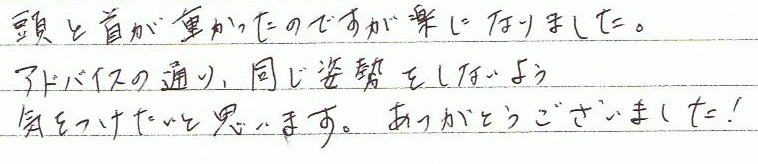 頭と首が重かったのですが楽になりました。
アドバイスの通り、同じ姿勢をしないよう
気をつけたいと思います。ありがとうございました!